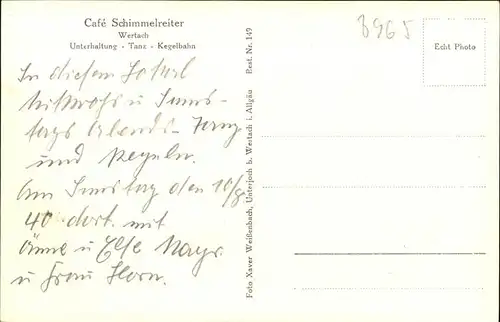 Café Schimmelreiter
Wertach
Unterhaltung - Tanz - Kegelbahn
In diesem Lokal
Mittwochs u Sams-
tags Abends - Tanz
und Kegeln.
Am Samstag den 10/8
40 dort mit
Änne u Else Mayr
u Frau Horn.
Foto Xaver Weißenbach, Unterjoch b. Wertach i. Allgäu
Best. Nr. 149
8965
Echt Photo